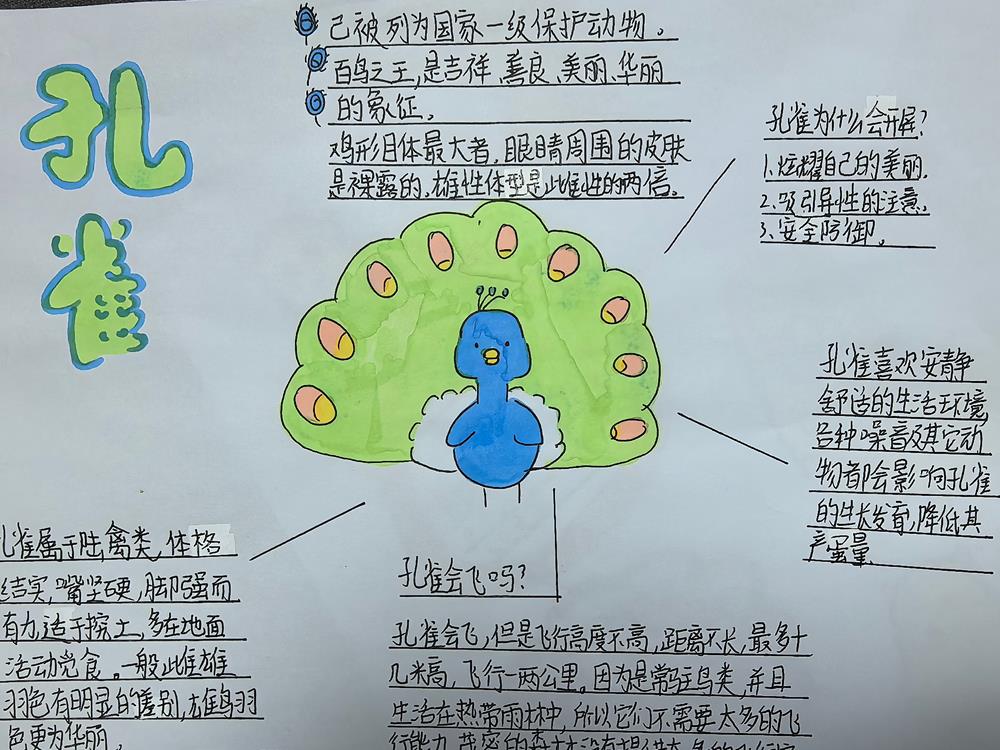 孔
雀
已被列为国家一级保护动物。
百鸟之王,是吉祥、善良、美丽、华丽
的象征。
鸡形目体最大者,眼睛周围的皮肤
是裸露的。雄性体型是雌性的两倍。
孔雀为什么会开屏?
1.炫耀自己的美丽.
2.吸引异性的注意.
3.安全防御.
孔雀喜欢安静
舒适的生活环境
各种噪音及其它动
物都会影响孔雀
的生长发育,降低其
产蛋量.
孔雀属于陆禽类,体格
结实,嘴坚硬,脚强而
有力,适于挖土,多在地面
活动觅食。一般雌雄
羽色有明显的差别,雄鸟羽
色更为华丽.
孔雀会飞吗?
孔雀会飞,但是飞行高度不高,距离不长,最多十
几米高,飞行一两公里。因为是常驻鸟类,并且
生活在热带雨林中,所以它们不需要太多的飞
行能力,茂密的森林